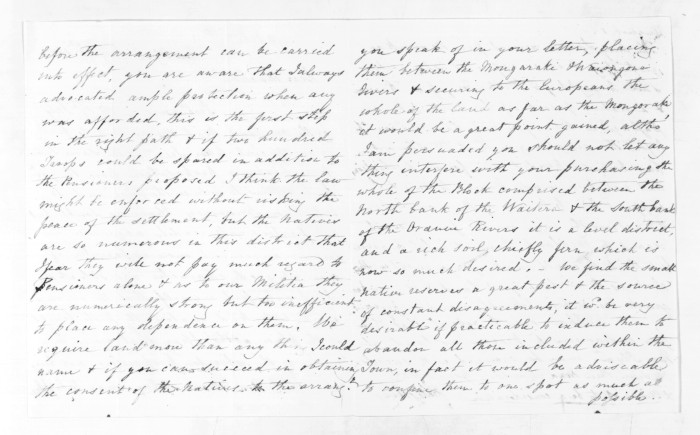 before the arrangement can be carried
into effect, you are aware that I always
advocated ample protection when any
was afforded, this is the first step
in the right path & if two hundred
Troops could be spared in addition to
the Pensioners proposed I think the law
might be enforced without risking the
peace of the settlement, but the Natives
are so numerous in this district that
I fear they will not pay much regard to
Pensioners alone & as to our Militia they
are numerically strong but too inefficient
to place any dependence on them. We
require land more than any thing I could
name & if you can succeed in obtaining
the consent of the Natives to the arrangt.
you speak of in your letter, placing
them between the Mongaraki &
Rivers & securing to the Europeans the
whole of the land as far as the Mongoraki
it would be a great point gained, altho'
I am persuaded you should not let any
thing interfere with your purchasing the
whole of the Block comprised between the
North bank of the Waitera & the South bank
of the Onaero Rivers it is a level district
and a rich soil, chiefly fern which is
now so much desired. – We find the small
native reserves a great pest & the source
of constant disagreements, it wd. be very
desirable if practicable to induce them to
abandon all those included within the
Town, in fact it would be adviseable
to confine them to one spot as much as
possible.